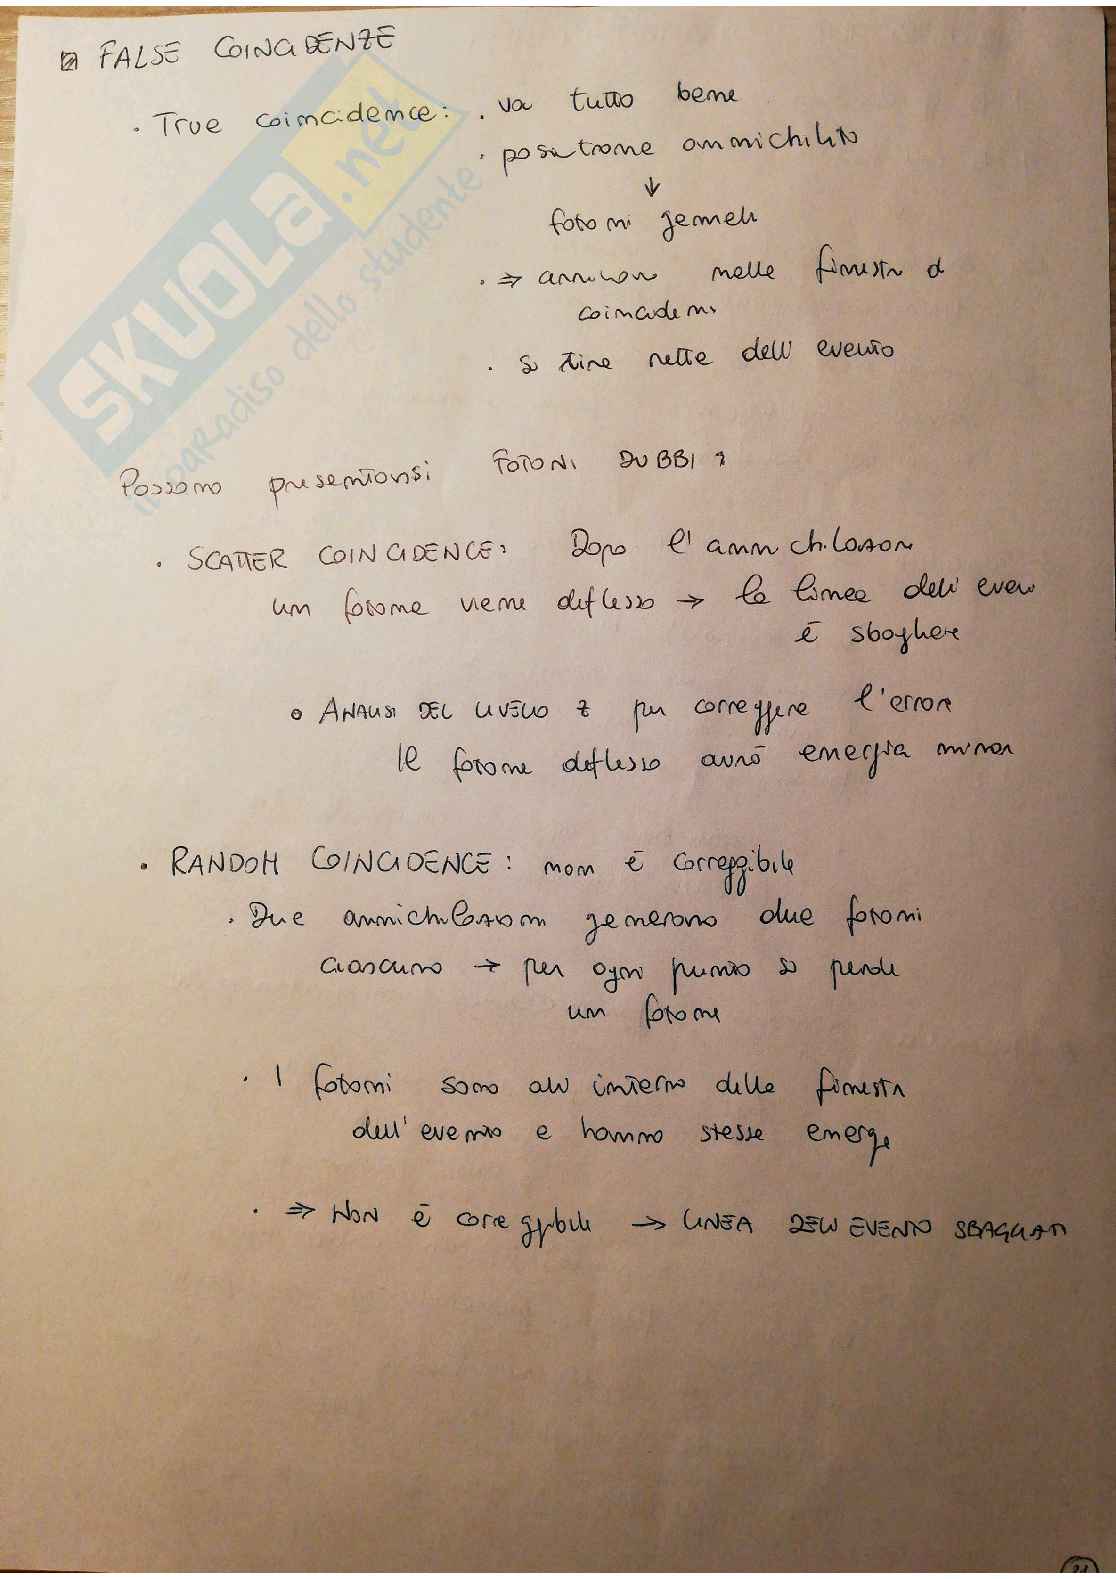 FALSE COINCIDENZE
· True coincidence: · va tutto bene
· positrone annichilito
↓
fotoni gemelli
· ⇒ arrivano nelle finestra di
coincidenza
· si tira rette dell'evento
Possono presentarsi FOTONI DUBBI:
· SCATTER COINCIDENCE: Dopo l'annichilazione
un fotone viene deflesso → la linea dell'evento
è sbagliata
• ANALISI DEL LIVELLO Z per correggere l'errore
Il fotone deflesso avrà energia minore
· RANDOM COINCIDENCE: non è correggibile
· Due annichilazioni generano due fotoni
ciascuno → per ogni punto si perde
un fotone
· I fotoni sono all'interno delle finestra
dell'evento e hanno stessa energia
· ⇒ NON è correggibile → LINEA DELL'EVENTO SBAGLIATA
SKUOLA.net
il paradiso dello studente
21